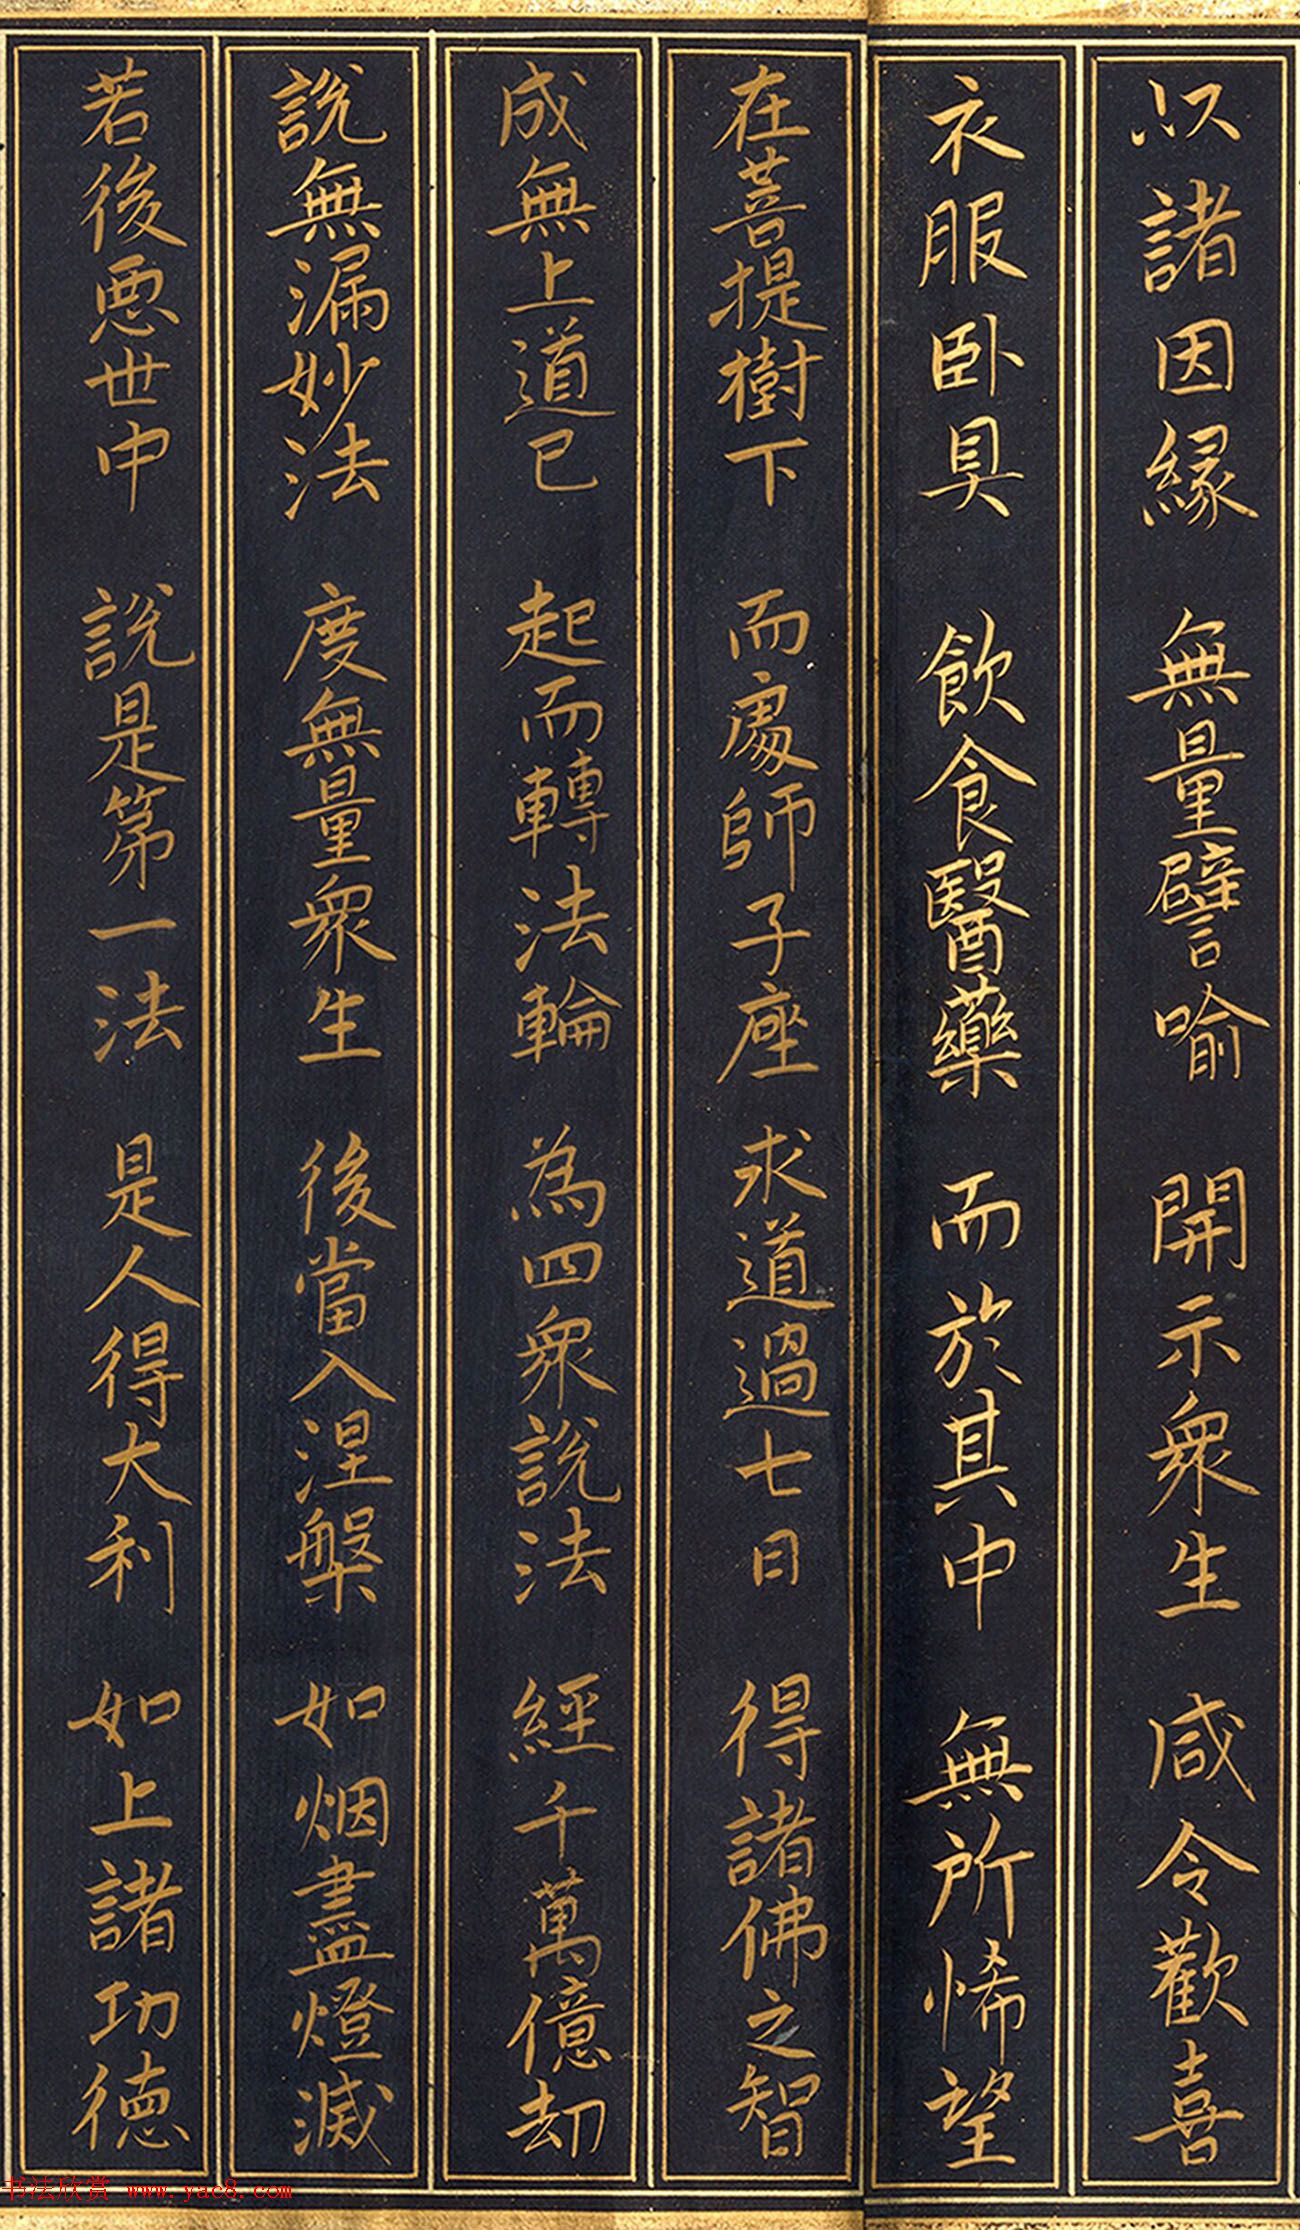 以諸因緣　無量譬喻　開示衆生　咸令歡喜
衣服卧具　飲食醫藥　而於其中　無所悕望
在菩提樹下　而處師子座　求道過七日　得諸佛之智
成無上道已　起而轉法輪　為四衆說法　經千萬億劫
說無漏妙法　度無量衆生　後當入涅槃　如烟盡燈滅
若後惡世中　說是第一法　是人得大利　如上諸功德
书法欣赏 www.yac8.com